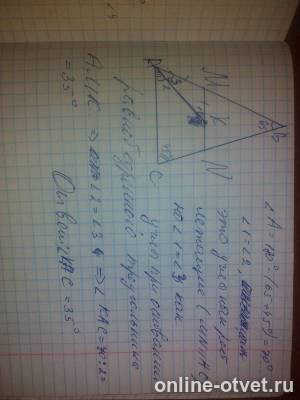 A
M
K
B
65
N
C
45°
∠A = 180° - (65+45) = 70°
∠1 = ∠2,
это углы накрест
лежащие (MN||AC)
то ∠1 = ∠3, как
углы при основании
равнобедренного треугольника
AMK ⇒ ∠2 = ⇒ ∠KAC = 70:2=
= 35°
Ответ: ∠KAC = 35°
online-otvet.ru